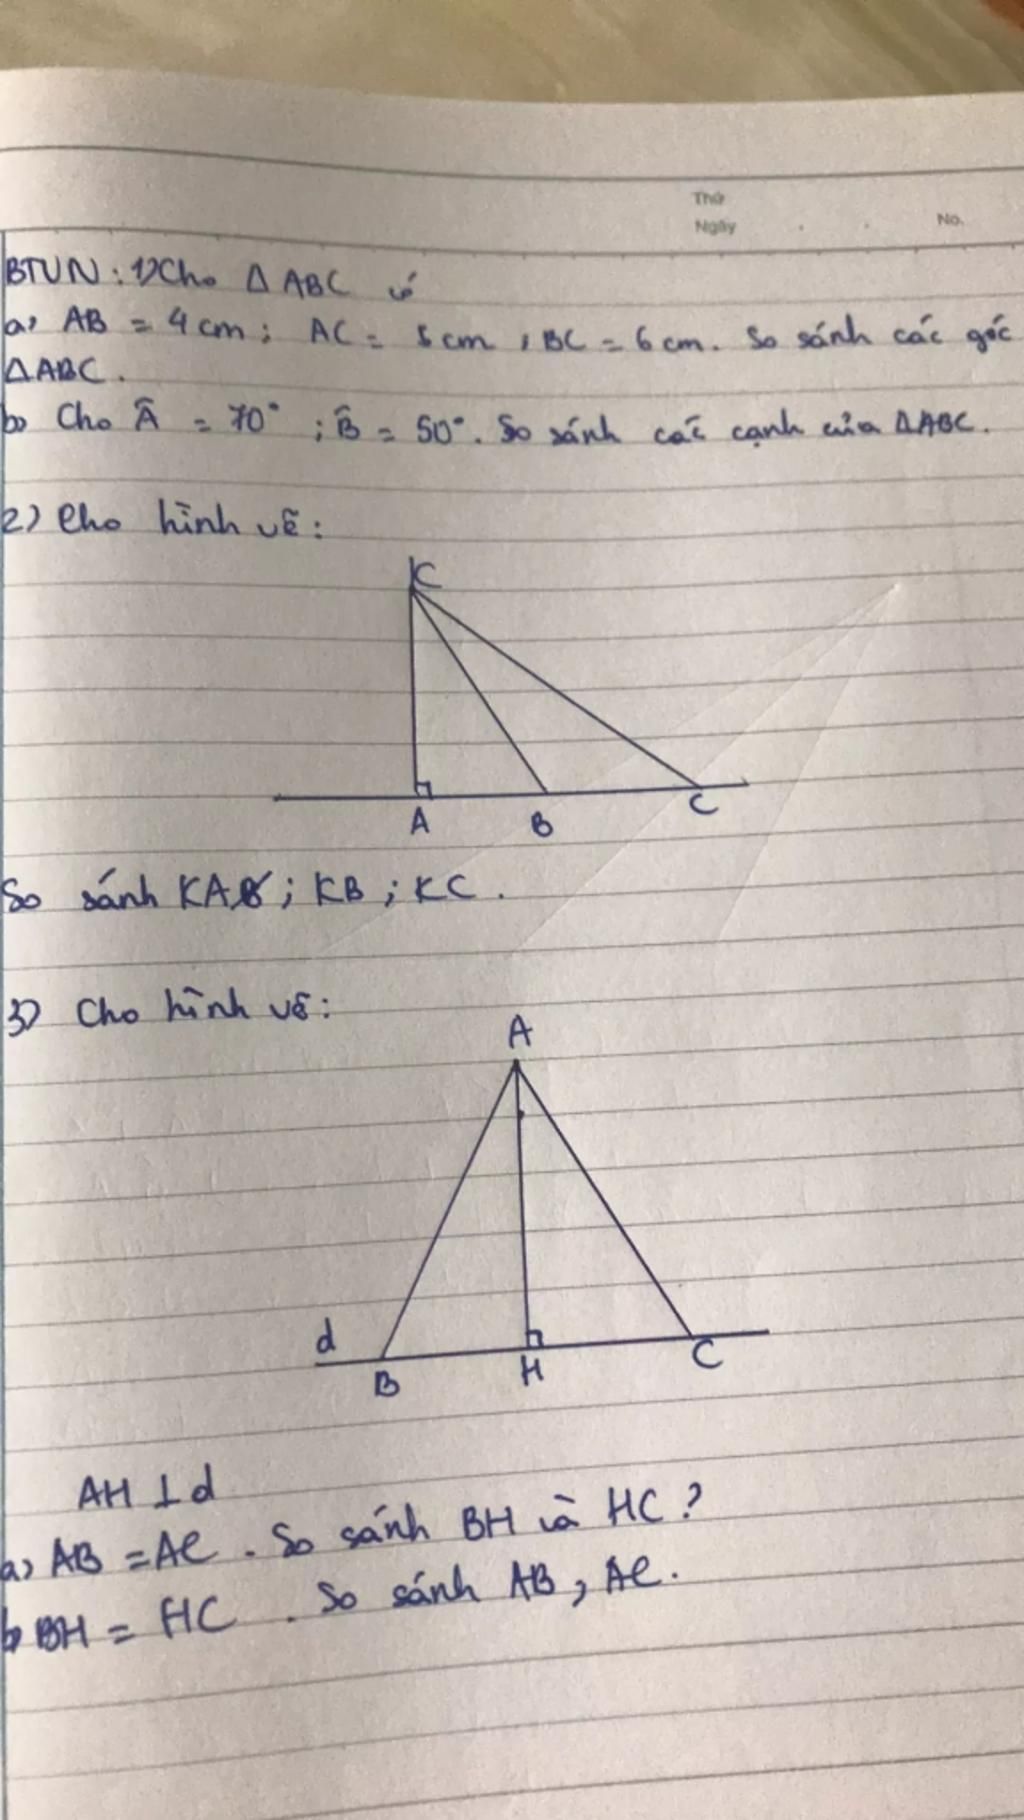 Thứ
Ngày No.
BTVN: 1) Cho Δ ABC có
a) AB = 4 cm; AC = 5 cm; BC = 6 cm. So sánh các góc
ΔABC.
b) Cho Â = 70°; B̂ = 50°. So sánh các cạnh của ΔABC.
2) Cho hình vẽ:
K
A B C
So sánh KA; KB; KC.
3) Cho hình vẽ:
A
d
B H C
AH ⊥ d
a) AB = AC. So sánh BH và HC?
b) BH = HC. So sánh AB, AC.